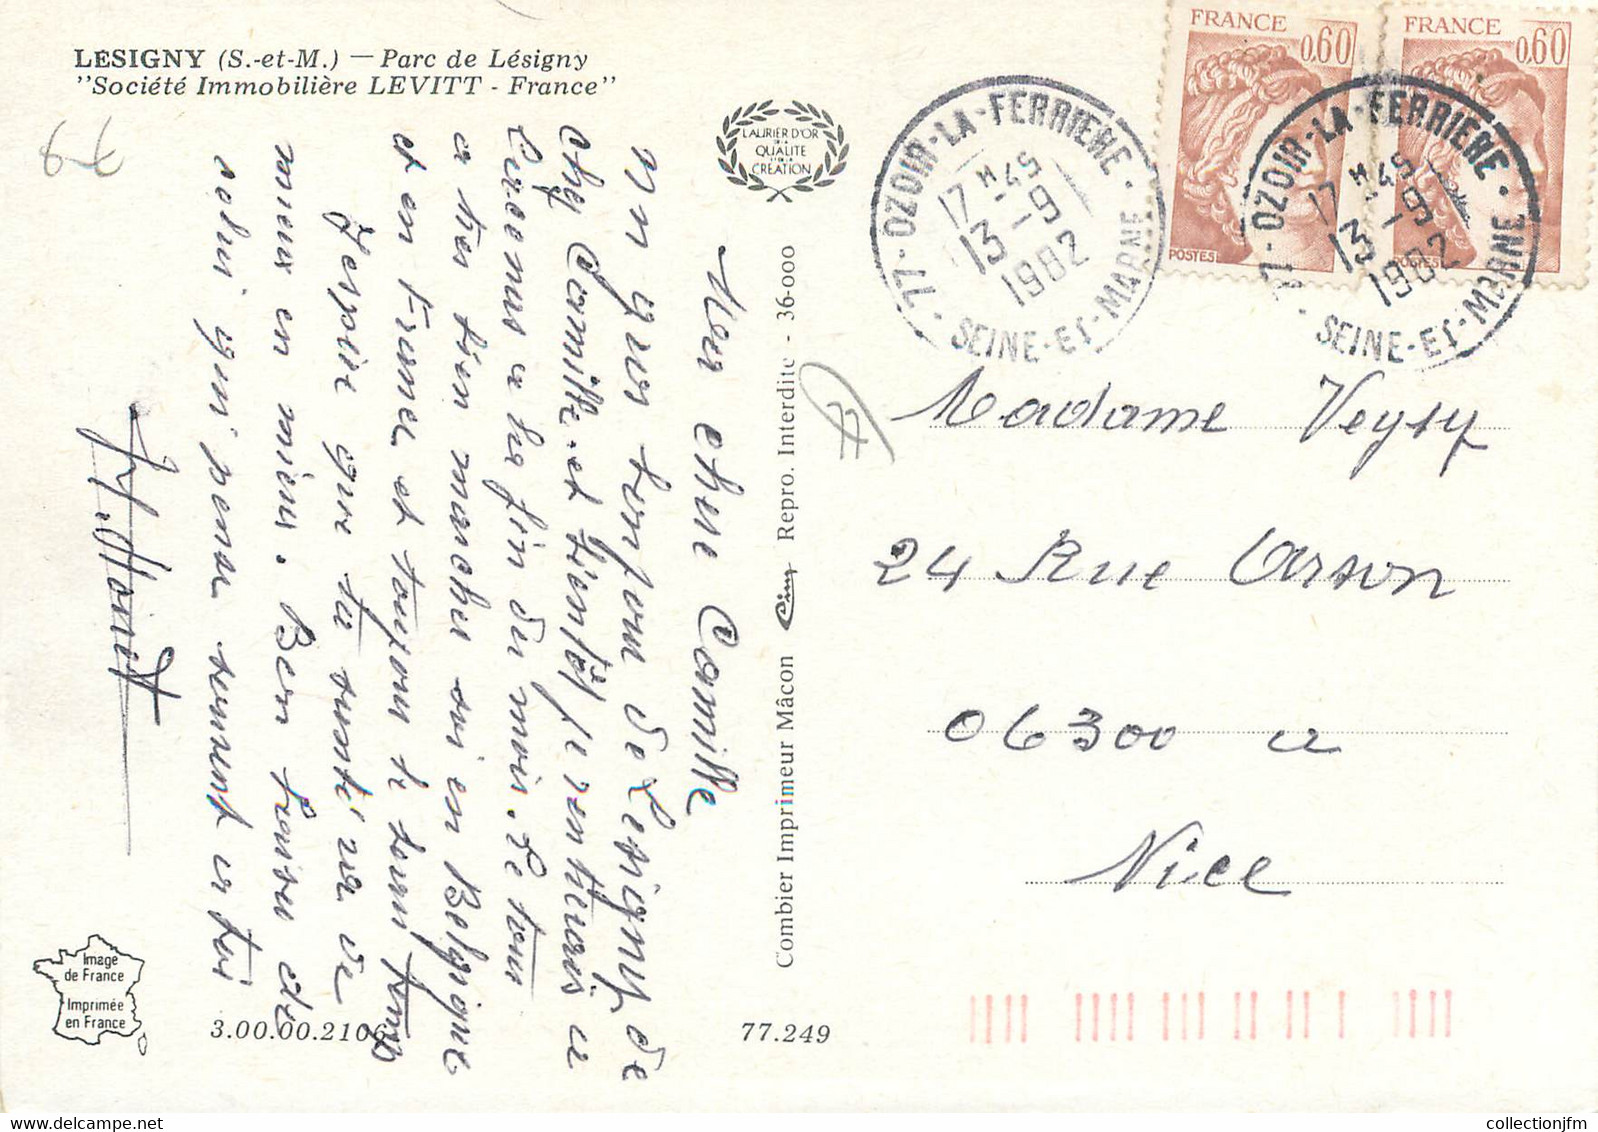 LESIGNY (S.-et-M.) — Parc de Lésigny
"Société Immobilière LEVITT - France"
LAURIER D'OR
DE LA
QUALITÉ
ET DE LA
CRÉATION
77 - OZOIR-LA-FERRIERE -
17 H 45
13 - 9
1982
SEINE-ET-MARNE
FRANCE
0,60
POSTES
FRANCE
0,60
POSTES
77 - OZOIR-LA-FERRIERE -
17 H 45
13 - 9
1982
SEINE-ET-MARNE
Ma chere Camille
un gros bonjour de Lesigny de
chez Camille et bientôt je rentrerais a
a la fin du mois. Le tous
a tres bien marcher soi en Belgique
et en France et toujours le beau temps
J'espère que ta santé va de
mieux en mieux. Bon baiser de
celui qui pense souvent a toi
Combier Imprimeur Mâcon Cim Repro. Interdite - 36-000
Madame Veysy
24 Rue Arson
06300 a
Nice
Image
de France
Imprimée
en France
3.00.00.2106
77.249
collectionjfm